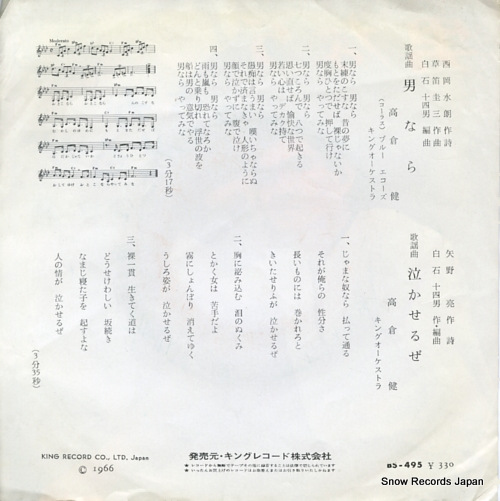 西岡水朗 作詩
草笛圭三 作曲
白石十四男 編曲
歌謡曲 男なら
高倉 健
(コーラス)ブルー エコーズ
キングオーケストラ
一、男なら 男なら
未練のこすな 昔の夢に
もとをただせば 裸じゃないか
度胸ひとつで 押して行け
男なら やってみな
二、男なら 男なら
七つころんで 八つで起きる
思い直せば 愉快な世界
若い心は デッカク持て
男なら やってみな
三、男なら 男なら
愚痴は言うまい 嘆いちゃならぬ
それで済まなきゃ 人形のように
顔で泣かずに 腹で泣け
男なら やってみな
四、男なら 男なら
雨も嵐も 恐れてなろか
どんと乗り切れ 浮世の波を
船は男の 意気でやる
男なら やってみな
(3分17秒)
Moderato
矢野 亮 作詩
白石十四男 作・編曲
歌謡曲 泣かせるぜ
高倉 健
キングオーケストラ
一、じゃまな奴なら 払って通る
それが俺らの 性分さ
長いものには 巻かれろと
きいたせりふが 泣かせるぜ
二、胸に泌み込む 泪のぬくみ
とかく女は 苦手だよ
霧にしょんぼり 消えてゆく
うしろ姿が 泣かせるぜ
三、裸一貫 生きてく道は
どうせけわしい 坂続き
なまじ寝た子を 起すよな
人の情が 泣かせるぜ
(3分35秒)
KING RECORD CO., LTD, Japan
© 1966
発売元・キングレコード株式会社
BS-495 ¥330
Snow Records Japan